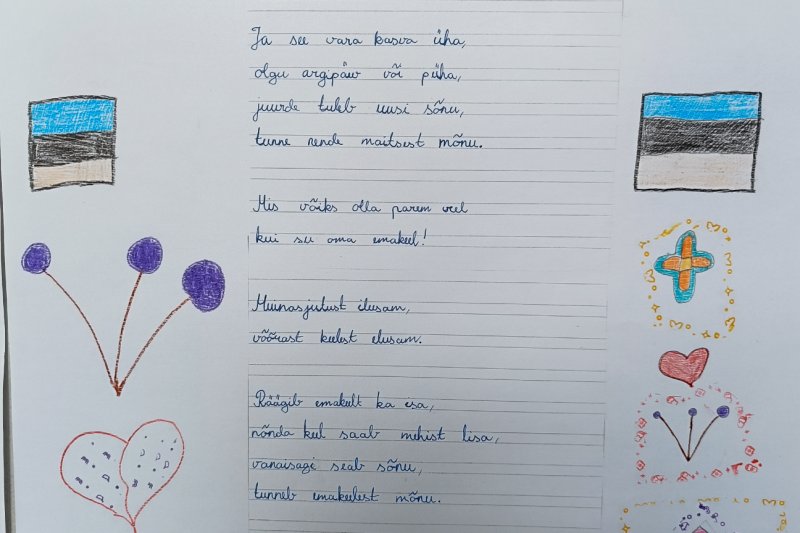 Ja see vara kasva üha,
olgu argipäev või püha,
juurde tuleb uusi sõnu,
tunne nende maitsest mõnu.
Mis võiks olla parem veel
kui su oma emakeel!
Muinasjutust ilusam,
võõrast keelest elusam.
Räägib emakelt ka esa,
nõnda keel saab mehist lisa,
vanaisagi seab sõnu,
tunneb emakeelest mõnu.